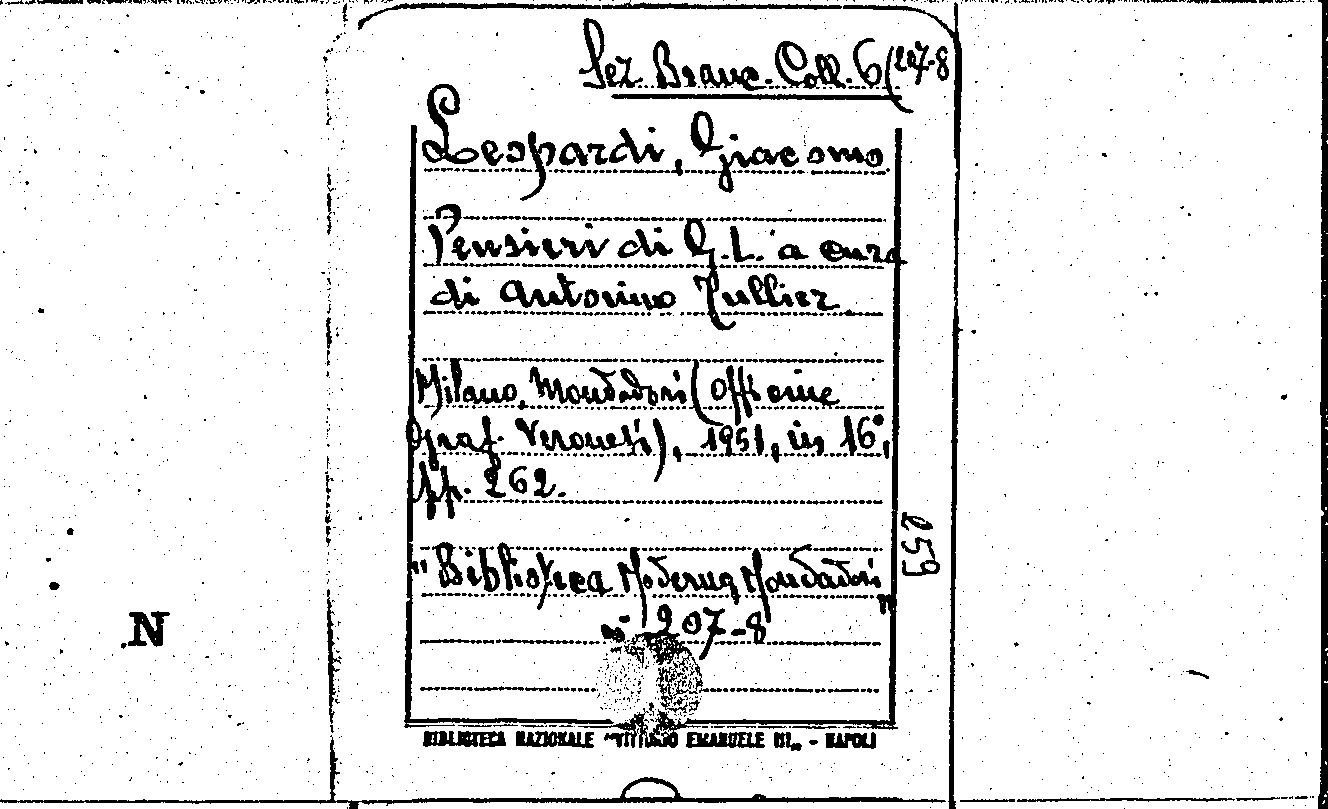 Sez. Branc. Coll. 6 (207-8
Leopardi, Giacomo
Pensieri di G. L. a cura
di Antonino
Milano, Mondadori (Officine
Graf. Veronesi), 1951, in 16°,
pp. 262.
259
"Biblioteca Moderna Mondadori"
n° 207-8
N
BIBLIOTECA NAZIONALE "VITTORIO EMANUELE III" - NAPOLI